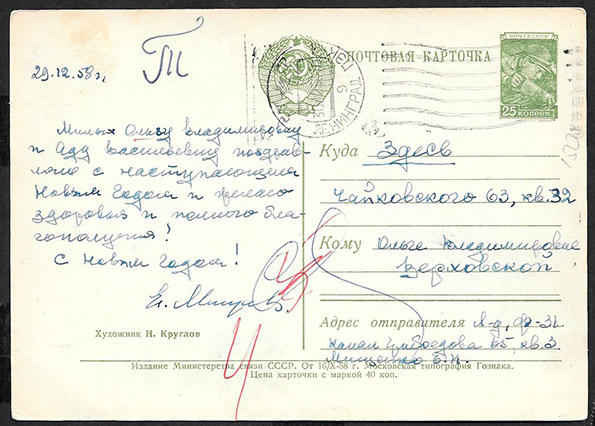 29.12.58 г.
Т
ПОЧТОВАЯ КАРТОЧКА
ПОЧТА СССР
25 КОПЕЕК
ЛЕНИНГРАД
Милых Ольгу Владимировну
и Аду Васильевну поздрав-
ляю с наступающим
Новым Годом и желаю
здоровья и полного бла-
гополучия!
С Новым Годом!
Художник Н. Круглов
Куда Здесь
Чайковского 63, кв. 32
Кому Ольге Владимировне
Верховской
Адрес отправителя Л-д, Ф-31
канал Грибоедова 65, кв. 3.
Мищенко Е.И.
Издание Министерства связи СССР. От 16/X-58 г. Московская типография Гознака.
Цена карточки с маркой 40 коп.